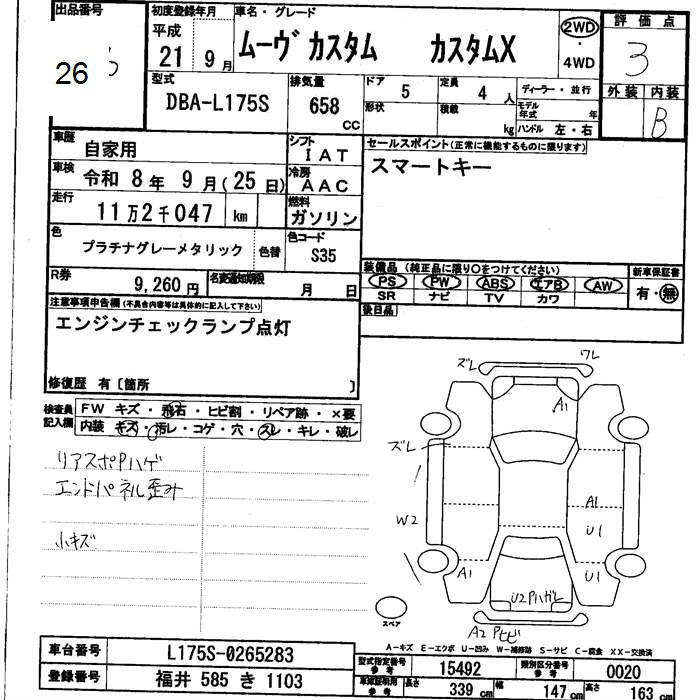 出品番号
26
初度登録年月
平成
21 9月
車名・グレード
ムーヴカスタム カスタムX
2WD
・
4WD
評価点
3
外装 内装
B
型式
DBA-L175S
排気量
658
cc
ドア 5
形状
定員 4 人
積載 kg
ディーラー・並行
モデル年式 年
ハンドル 左・右
車歴
自家用
シフト
IAT
車検
令和 8年 9月(25日)
冷房
AAC
走行
11万2千047 km
燃料
ガソリン
色
プラチナグレーメタリック
色替
色コード
S35
セールスポイント(正常に機能するものに限ります)
スマートキー
R券
9,260円
名変通知期限
月 日
装備品(純正品に限り○をつけてください)
PS PW ABS エアB AW
SR ナビ TV カワ
新車保証書
有・無
後日品
注意事項申告欄(不具合内容等は具体的に記入して下さい)
エンジンチェックランプ点灯
修復歴 有〔箇所 〕
検査員記入欄
FW キズ・飛石・ヒビ割・リペア跡・×要
内装・キズ・汚レ・コゲ・穴・スレ・キレ・破レ
リアスポPハゲ
エンドパネル歪み
小キズ
ズレ
ワレ
A1
ズレ
W2
A1
U1
A1
U1
U2Pハガレ
A2Pヒビ
スペア
A-キズ E-エクボ U-凹み W-補修跡 S-サビ C-腐食 XX-交換済
車台番号
L175S-0265283
登録番号
福井 585 き 1103
型式指定番号
参考
15492
類別区分番号
参考
0020
車庫証明用
参考
長さ 339 cm
幅 147 cm
高さ 163 cm